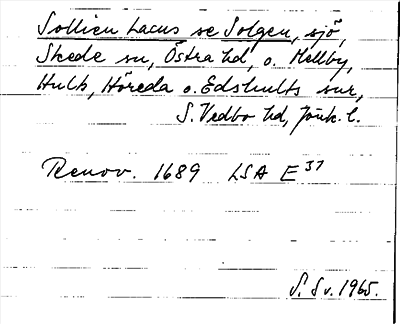 Sollien Lacus se Solgen, sjö,
Skede sn, Östra hd, o. Mellby,
Hult, Höreda o. Edshults snr,
S. Vedbo hd, Jönk. l.
Renov. 1689 LSA E 37
S. Sv. 1965.